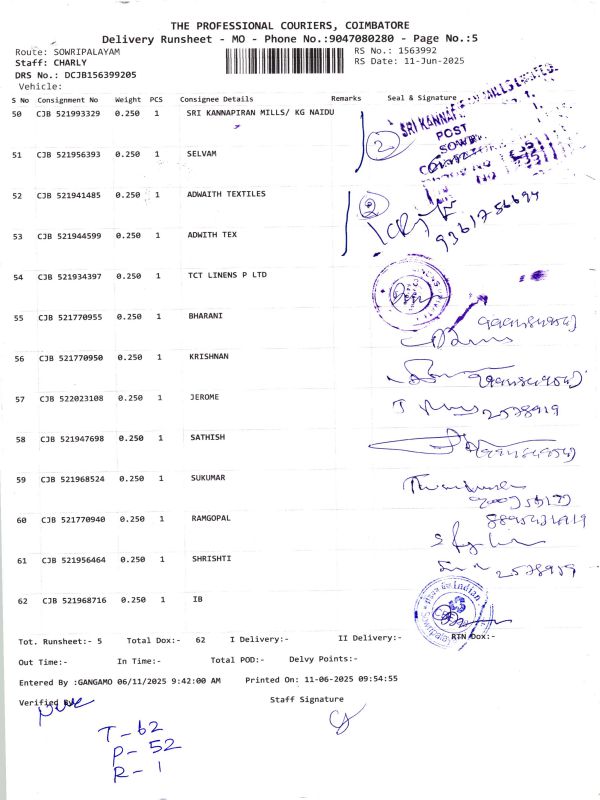 THE PROFESSIONAL COURIERS, COIMBATORE
Delivery Runsheet - MO - Phone No.:9047080280 - Page No.:5
Route: SOWRIPALAYAM
RS No.: 1563992
Staff: CHARLY
RS Date: 11-Jun-2025
DRS No.: DCJB156399205
Vehicle:
S No Consignment No Weight PCS Consignee Details Remarks Seal & Signature
50 CJB 521993329 0.250 1 SRI KANNAPIRAN MILLS/ KG NAIDU
2
POST
51 CJB 521956393 0.250 1 SELVAM
52 CJB 521941485 0.250 1 ADWAITH TEXTILES
2
9361756694
53 CJB 521944599 0.250 1 ADWITH TEX
54 CJB 521934397 0.250 1 TCT LINENS P LTD
55 CJB 521770955 0.250 1 BHARANI
56 CJB 521770950 0.250 1 KRISHNAN
57 CJB 522023108 0.250 1 JEROME
2578919
58 CJB 521947698 0.250 1 SATHISH
59 CJB 521968524 0.250 1 SUKUMAR
60 CJB 521770940 0.250 1 RAMGOPAL
61 CJB 521956464 0.250 1 SHRISHTI
62 CJB 521968716 0.250 1 IB
Tot. Runsheet:- 5 Total Dox:- 62 I Delivery:- II Delivery:- RTN Dox:-
Out Time:- In Time:- Total POD:- Delvy Points:-
Entered By :GANGAMO 06/11/2025 9:42:00 AM Printed On: 11-06-2025 09:54:55
Verified By
Staff Signature
T - 62
P - 52
R - 1